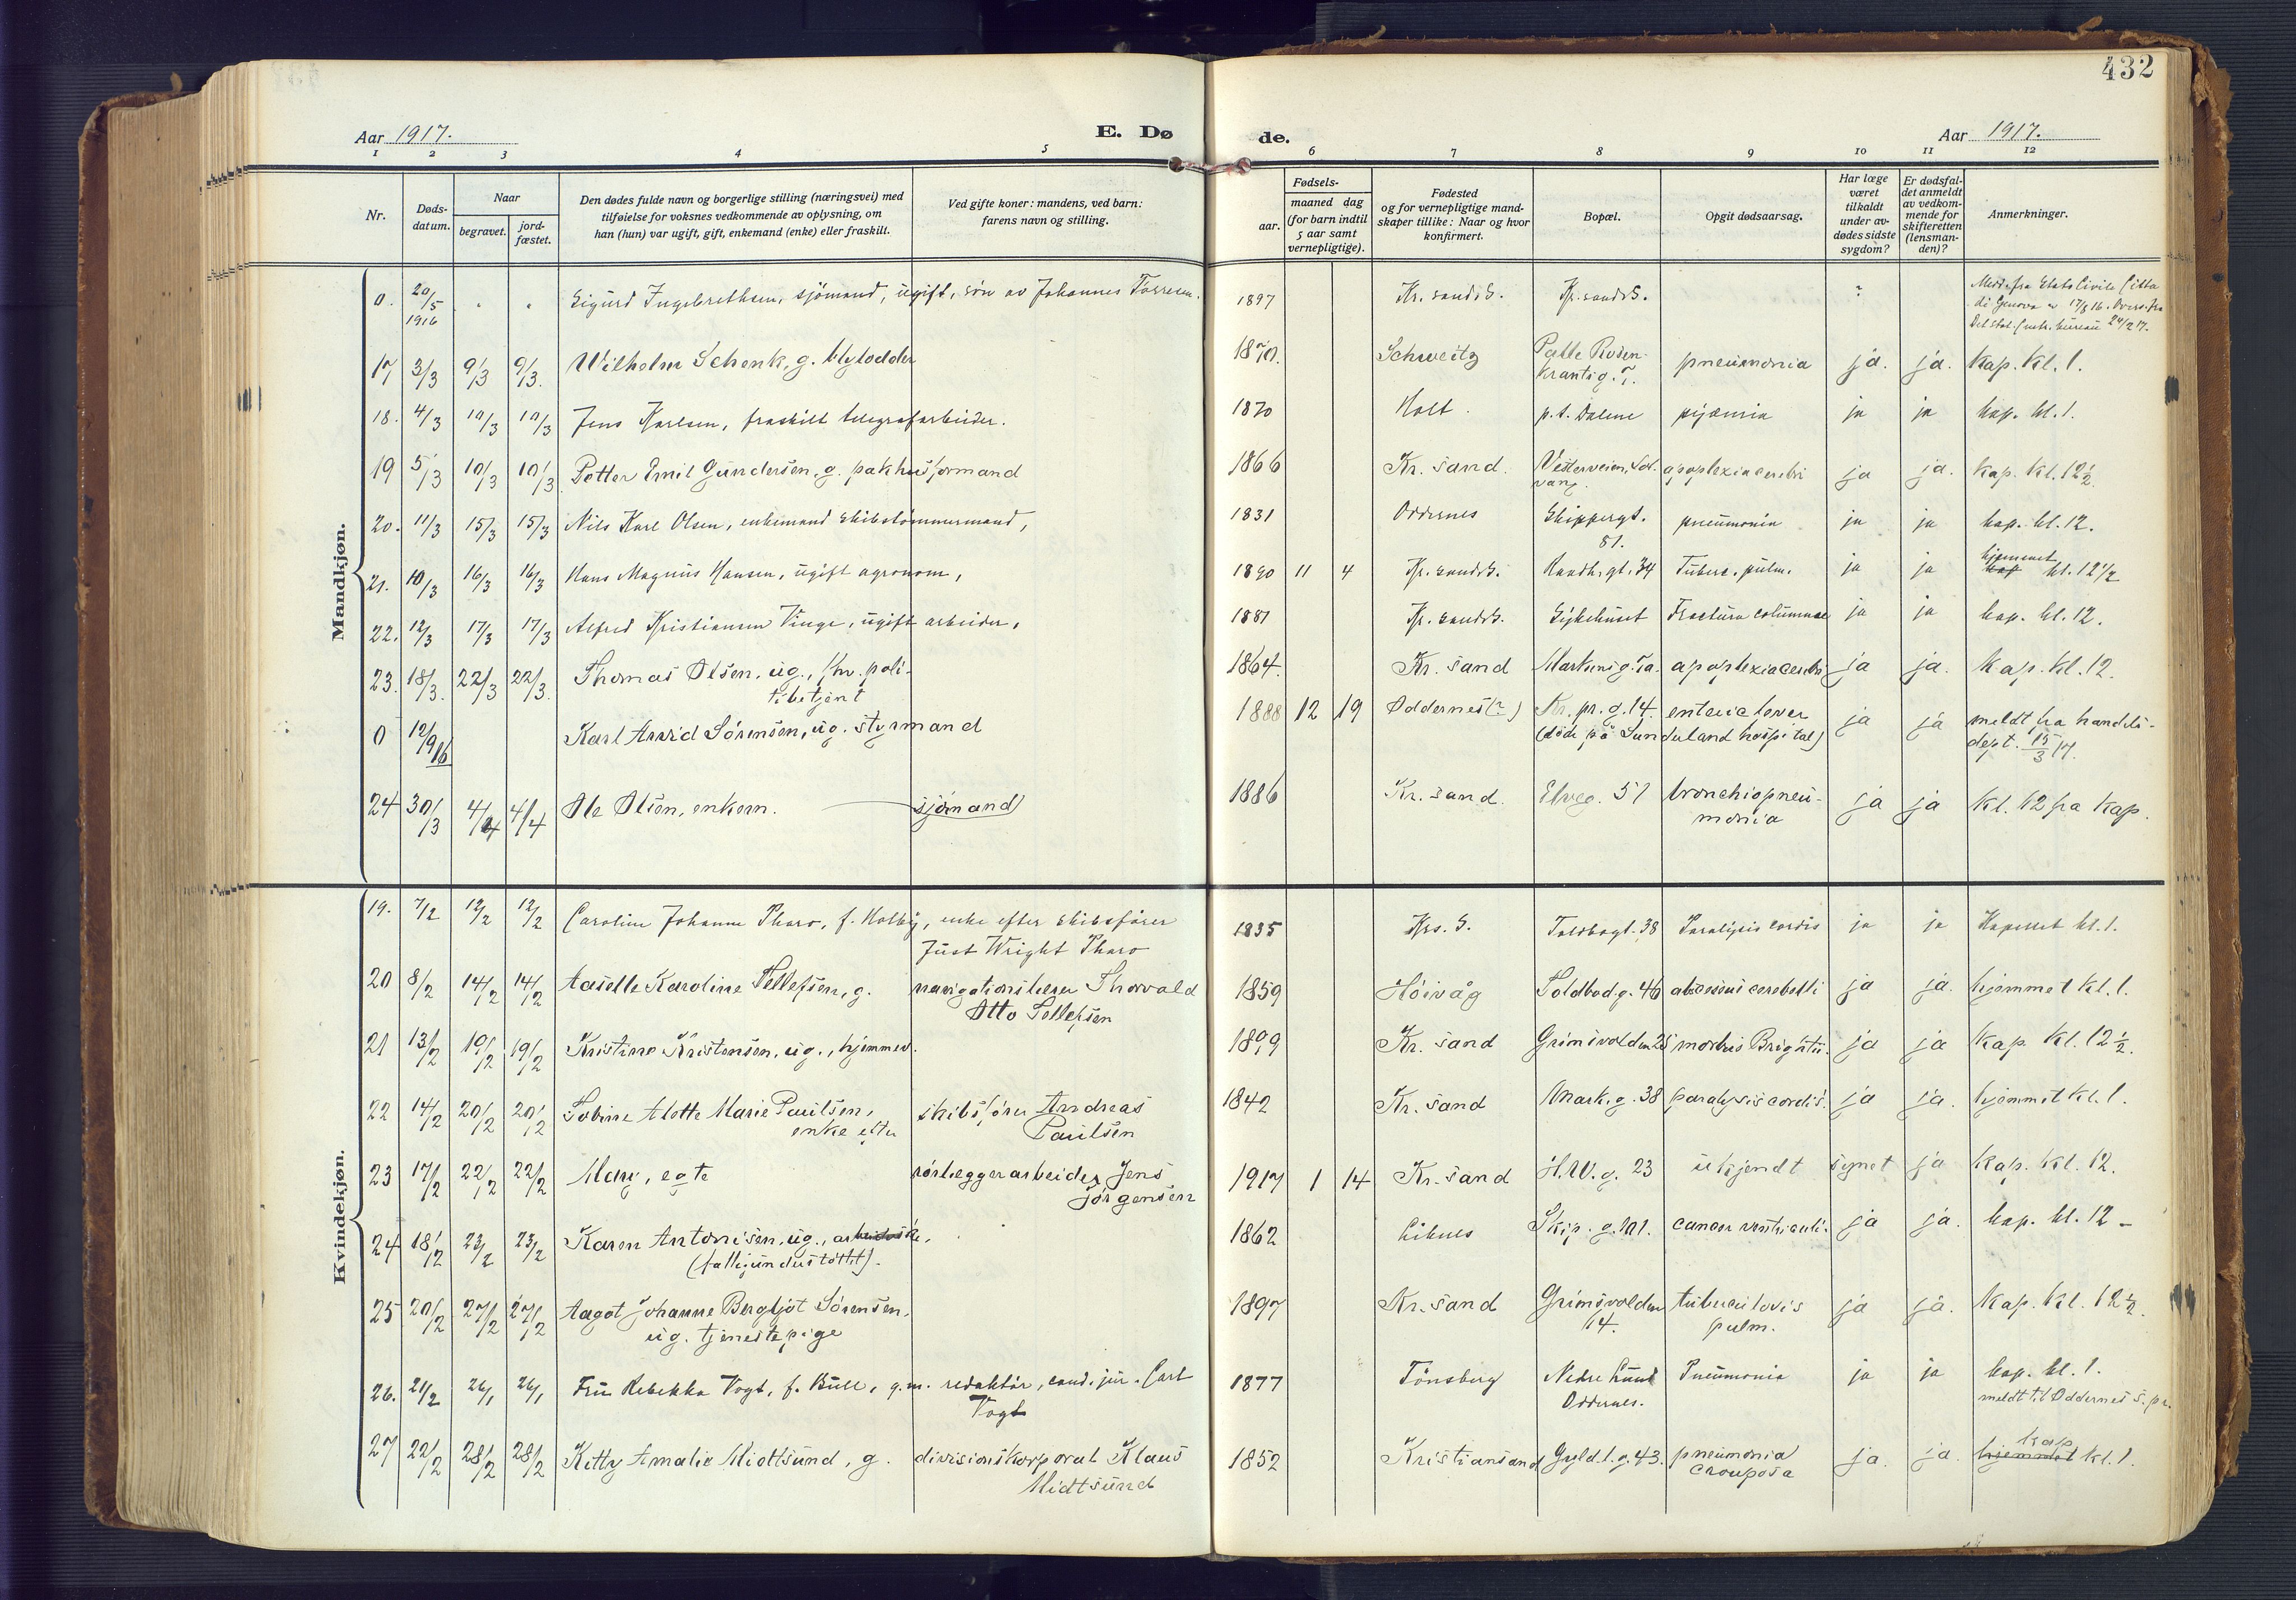 432
Aar 1917. E. Dø de. Aar 1917.
1 2 3 4 5 6 7 8 9 10 11 12
Nr. Døds-datum. Naar begravet. jord-fæstet. Den dødes fulde navn og borgerlige stilling (næringsvei) med tilføielse for voksnes vedkommende av oplysning, om han (hun) var ugift, gift, enkemand (enke) eller fraskilt. Ved gifte koner: mandens, ved barn: farens navn og stilling. Fødsels- aar. maaned dag (for barn indtil 5 aar samt vernepligtige). Fødested og for vernepligtige mand-skaper tillike: Naar og hvor konfirmert. Bopæl. Opgit dødsaarsag. Har læge været tilkaldt under av-dødes sidste sygdom? Er dødsfal-det anmeldt av vedkom-mende for skifteretten (lensman-den)? Anmerkninger.
Mandkjøn.
0. 20/5 1916 " " Sigurd Ingebrethsen, sjömand, ugift, sön av Johannes Torresen. 1897 Kr.sandS. Kr.sandS. ? Medd. fra Stato Civile Citta
di Genova av 17/8 16. Overs. fra
Det stat. Centr. bureau 24/2 17.
17 3/3 9/3 9/3. Wilhelm Schenk, g. blylodder 1870. Schweitz Palle Rosen-
krantsg. 7. pneumonia ja. ja. Kap. Kl. 1.
18. 4/3 10/3 10/3 Jens Karlsen, fraskilt telegrafarbeider. 1870 Holt. p.t. Dalene pyæmia ja ja kap. kl. 1.
19 5/3 10/3 10/3 Petter Emil Gundersen, g. pakhusformand 1866 Kr. sand. Vesterveien, Sol-
vang. apoplexia cerebri ja ja. Kap. Kl. 12½.
20. 11/3 15/3 15/3 Nils Karl Olsen, enkemand skibstömmermand, 1831 Oddernes Skippergt.
81. pneumonia ja ja kap. kl. 12.
21. 10/3 16/3 16/3 Hans Magnus Hansen, ugift agronom, 1890 11 4 Kr.sandS. Kandh.gt. 34 Tuberc. pulm. ja ja hjemmet
kap kl. 12½
22. 12/3 17/3 17/3 Alfred Kristiansen Vinge, ugift arbeider, 1881 Kr.sandS. Sykehuset Fractura columnae ja ja kap. kl. 12.
23. 18/3. 22/3 22/3. Thomas Olsen, ug., fhv. poli-
tibetjent 1864. Kr. sand Markensg. 7a. apoplexia cerebri ja ja. Kap. Kl. 12.
0 12/9 16 Karl Arvid Sörensen, ug. styrmand 1888 12 19 Oddernes(?) Kr. pr. g. 14. enteric fever
(död på Sunderland hospital) ja ja meldt fra handels-
dept. 15/3 17.
24 30/3 4/4 4/4 Ole Olsen, enkem. sjömand 1886 Kr. sand. Elveg. 51 bronchiopneu-
monia ja ja Kl. 12 fra Kap.
Kvindekjøn.
19. 7/2 12/2 12/2 Caroline Johanne Pharo, f. Holby, enke efter skibsförer
Just Wright Pharo 1835 Krs. S. Toldbogt. 38 Paralysis cordis ja ja Kapellet kl. 1.
20 8/2 14/2 14/2 Aaselle Karoline Tellefsen, g. navigationslærer Thorvald
Otto Tellefsen 1859 Höivåg Toldbod.g. 46 abscessus cerebelli ja ja. hjemmet Kl. 1.
21 13/2 19/2 19/2 Kristine Kristensen, ug., hjemmev. 1899 Kr. sand Grimsvolden 25 morbus Brightii. ja ja Kap. Kl. 12½.
22 14/2 20/2 20/2 Tobine Alette Marie Paulsen,
enke efter skibsförer Andreas
Paulsen 1842 Kr. sand Mark.g. 38 paralysis cordis. ja ja. hjemmet Kl. 1.
23 17/2 22/2 22/2 Mary, egte rörlæggerarbeider Jens
Jörgensen 1917 1 14 Kr. sand H.W.g. 23 ukjendt synet ja Kap. Kl. 12.
24 18/2 23/2 23/2 Karen Antonisen, ug.,
(fattigunderstöttet). 1862 Liknes Skip.g. 101. cancer ventriculi. ja ja. kap. kl. 12 –
25 20/2 27/2 27/2 Aagot Johanne Bergljot Sörensen,
ug. tjenestepige 1897 Kr. sand Grimsvolden
14. tuberculosis
pulm. ja ja. Kap. Kl. 12½.
26. 21/2 26/1 26/1 Fru Rebekka Vogt, f. Bull, g.m. redaktör, cand. jur. Carl
Vogt 1877 Tönsberg Nedre Lund
Oddernes. Pneumonia ja ja kap. kl. 1.
meldt til Oddernes s.pr.
27 22/2 28/2 28/2 Kitty Amalie Midtsund, g. divisionskorporal Klaus
Midtsund 1852 Kristiansand Gyld.l.g. 43. pneumonia
crouposa ja. ja. kap
hjemmet kl. 1.